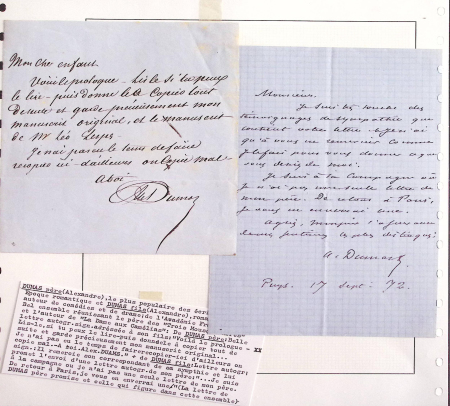 Mon cher enfant
Voici le prologue - Lis le si tu peux
le lire - puis donne le à Copier tout
de suite et garde précieusement mon
manuscrit original, et le manuscrit
de Mr Léo
Je n'ai pas eu le temps de faire
recopier ici - d'ailleurs on Copie mal
A toi
Alex Dumas
Monsieur,
Je suis très touché des
témoignages de sympathie que
contient votre lettre
qu'à vous en remercier comme
je le fais
Je suis à la campagne où
je n'ai pas une seule lettre de
mon père. De retour à Paris,
je vous en enverrai une.
Agréez, Monsieur, l'assurance
de mes sentiments les plus distingués
A. Dumas f.
Puys. 17 Sept. 72.
DUMAS père(Alexandre),le plus populaire des
Epoque romantique et DUMAS fils(Alexandre),
auteur de comédies et de drames,de l'Académie
Bel ensemble réunissant le père des "Trois
et l'auteur de "La Dame aux Camélias": De DUMAS père:Belle
lettre autogr.sign.adressée à son fils:"Voilà le prologue - xx
Lis-le,si tu peux le lire-puis donne-le à copier tout de
suite et garde précieusement mon manuscrit original...
Je n'ai pas eu le temps de faire recopier ici d'ailleurs on
copie mal - Alex.DUMAS." + de DUMAS fils:Lettre autogr.
sign.:Il remercie son correspondant de sa sympathie et lui
promet l'envoi d'une lettre autogr.de son père:"...Je suis
à la campagne où je n'ai pas une seule lettre de mon père.
De retour à Paris,je vous en enverrai une"(La lettre de
DUMAS père promise et celle qui figure dans cette ensemble)